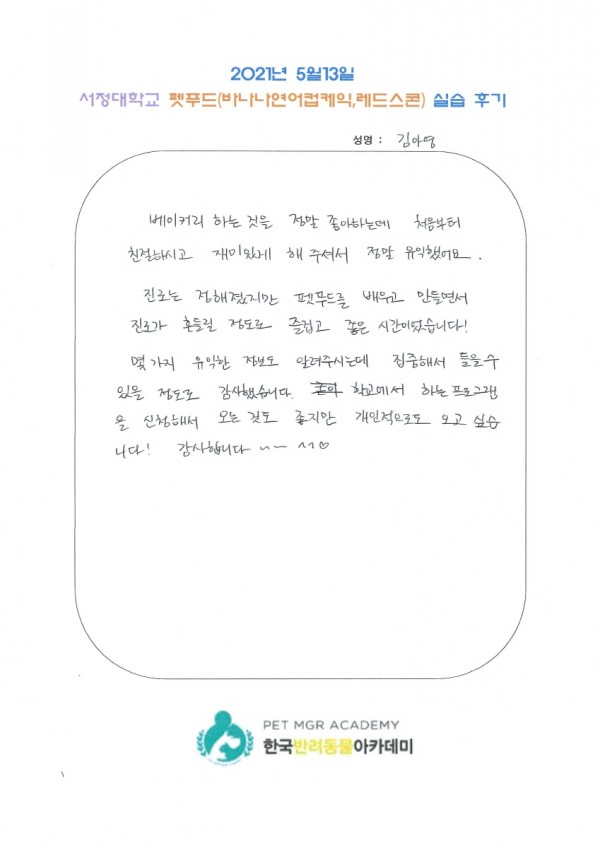 2021년 5월13일
서정대학교 펫푸드(바나나연어컵케익,레드스콘) 실습 후기
성명 : 김아영
베이커리 하는 것을 정말 좋아하는데 처음부터
친절하시고 재미있게 해 주셔서 정말 유익했어요.
진로는 정해졌지만 펫푸드를 배우고 만들면서
진로가 흔들릴 정도로 즐겁고 좋은 시간이었습니다!
몇가지 유익한 정보도 알려주시는데 집중해서 들을 수
있을 정도로 감사했습니다. 학교에서 하는 프로그램
을 신청해서 오는 것도 좋지만 개인적으로도 오고 싶습
니다! 감사합니다 ~~ ^^♡
PET MGR ACADEMY
한국반려동물아카데미